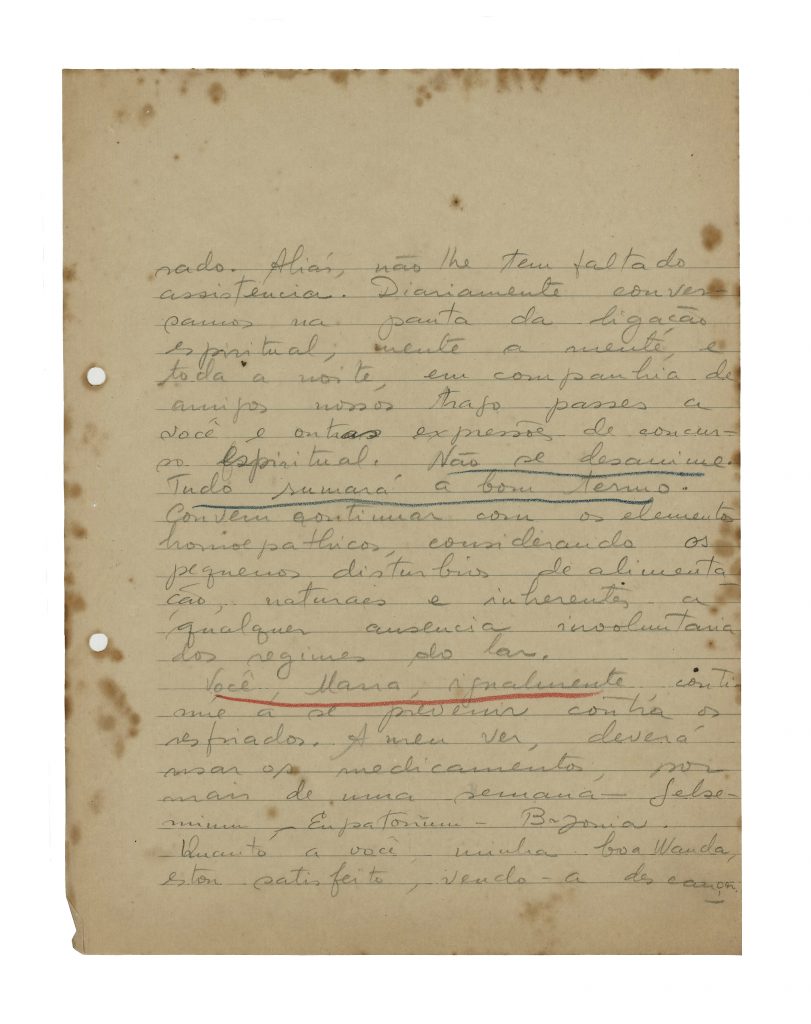 rado. Aliás, não lhe tem faltado
assistencia. Diariamente conver-
samos na pauta da ligação
espiritual, mente a mente, e
toda a noite, em companhia de
amigos nossos trago passes a
você e outras expressões de concur-
so Espiritual. Não se desanime.
Tudo rumará a bom termo.
Convém continuar com os elementos
homoepathicos, considerando os
pequenos disturbios de alimenta
ção, naturaes e inherentes a
qualquer ausencia involuntaria
dos regimes do lar.
Você, Maria, igualmente, conti-
nue á se prevenir contra os
resfriados. A meu ver, deverá
usar os medicamentos, por
mais de uma semana – Gelse-
minum – Eupatorium – Bryonia.
Quanto a você, minha boa Wanda,
estou satisfeito, vendo-a